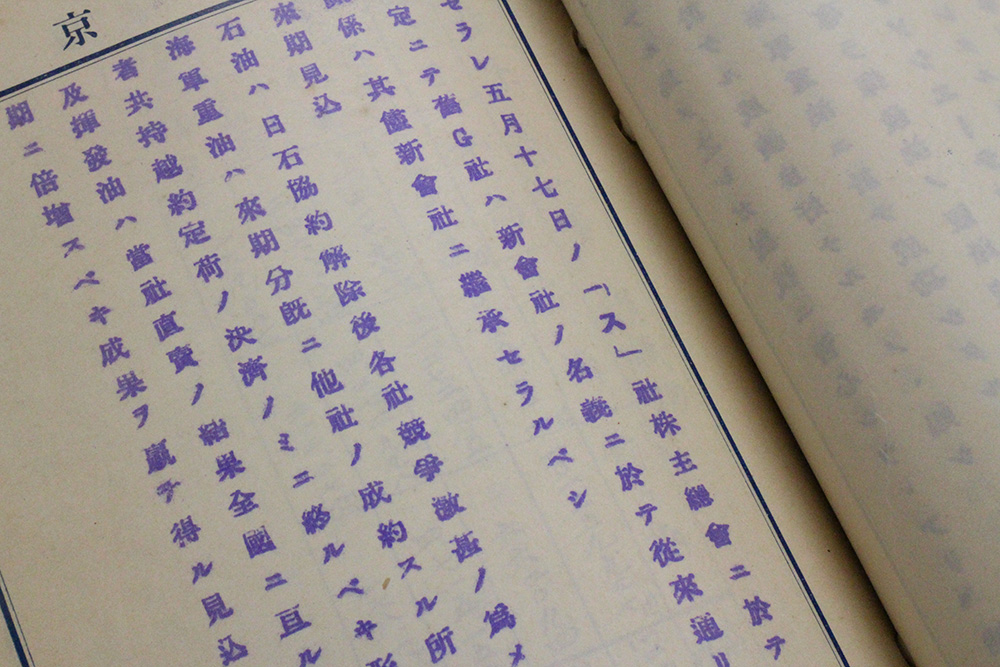 京
セラレ五月十七日ノ「ス」社株主總會ニ於テ
定ニテ舊G社ハ新會社ノ名義ニ於テ從來通リ
係ハ其儘新會社ニ繼承セラルベシ
來期見込
石油ハ日石協約解除後各社競爭激甚ノ爲メ
海軍重油ハ來期分既ニ他社ノ成約スル所
者共持越約定荷ノ決濟ノミニ終ルベキ形
及揮發油ハ當社直賣ノ結果全國ニ亘ル
期ニ倍增スベキ成果ヲ贏チ得ル見込